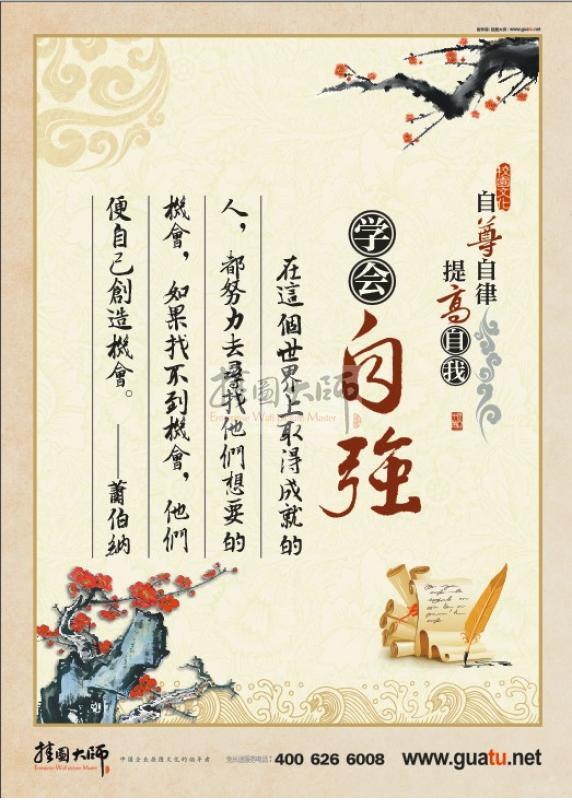 智帮图 挂图大师 | www.guatu.net
校园文化
自尊自律
提高自我
学会
自強
在這個世界上取得成就的
人，都努力去尋找他們想要的
機會，如果找不到機會，他們
便自己創造機會。——蕭伯納
挂圖大师
Enterprise Wall picture Master
挂圖大师
Enterprise Wall picture Master
中国企业挂图文化的领导者
免长途服务电话：400 626 6008
www.guatu.net